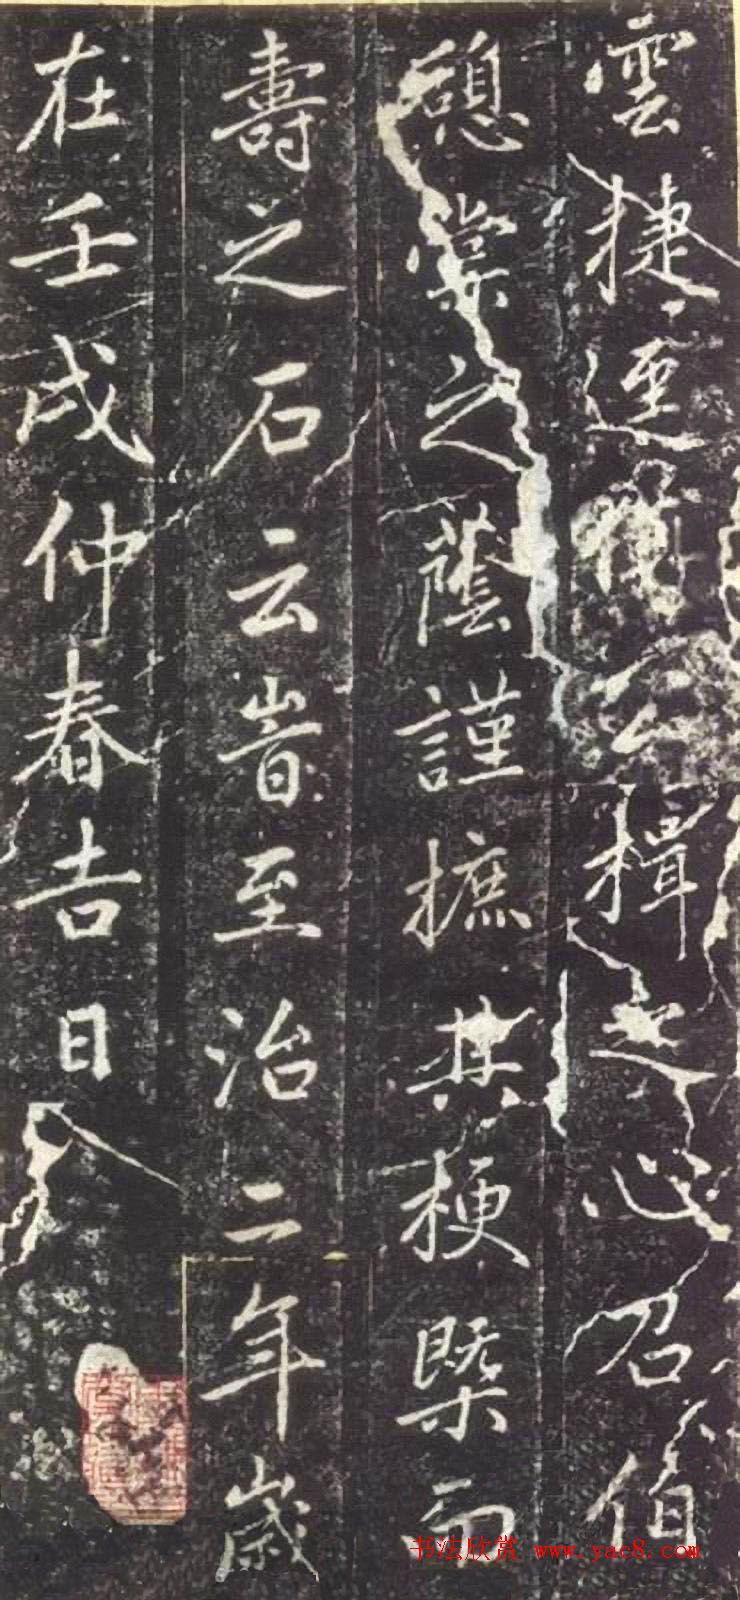 雲捷逕公楫之心召伯
憩棠之蔭謹摭其梗槩而
壽之石云峕至治二年歲
在壬戌仲春吉日
书法欣赏 www.yac8.com